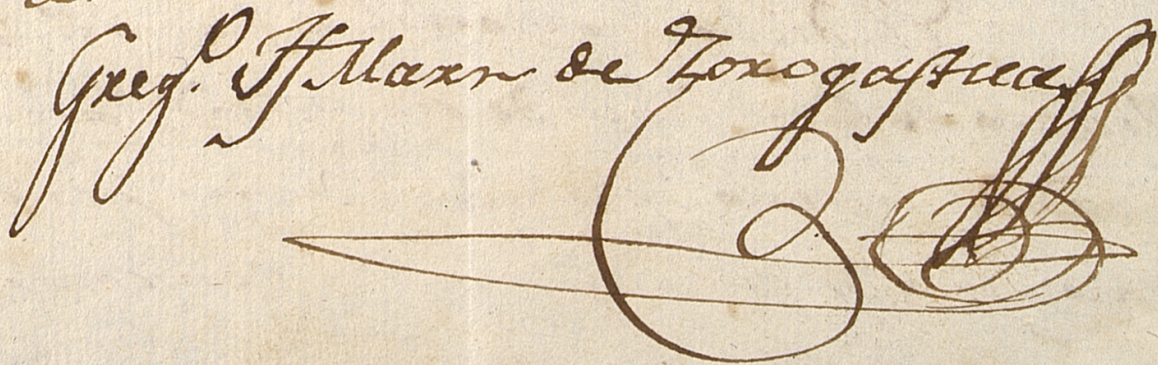 Greg.º Fr Marn de Zorogastua